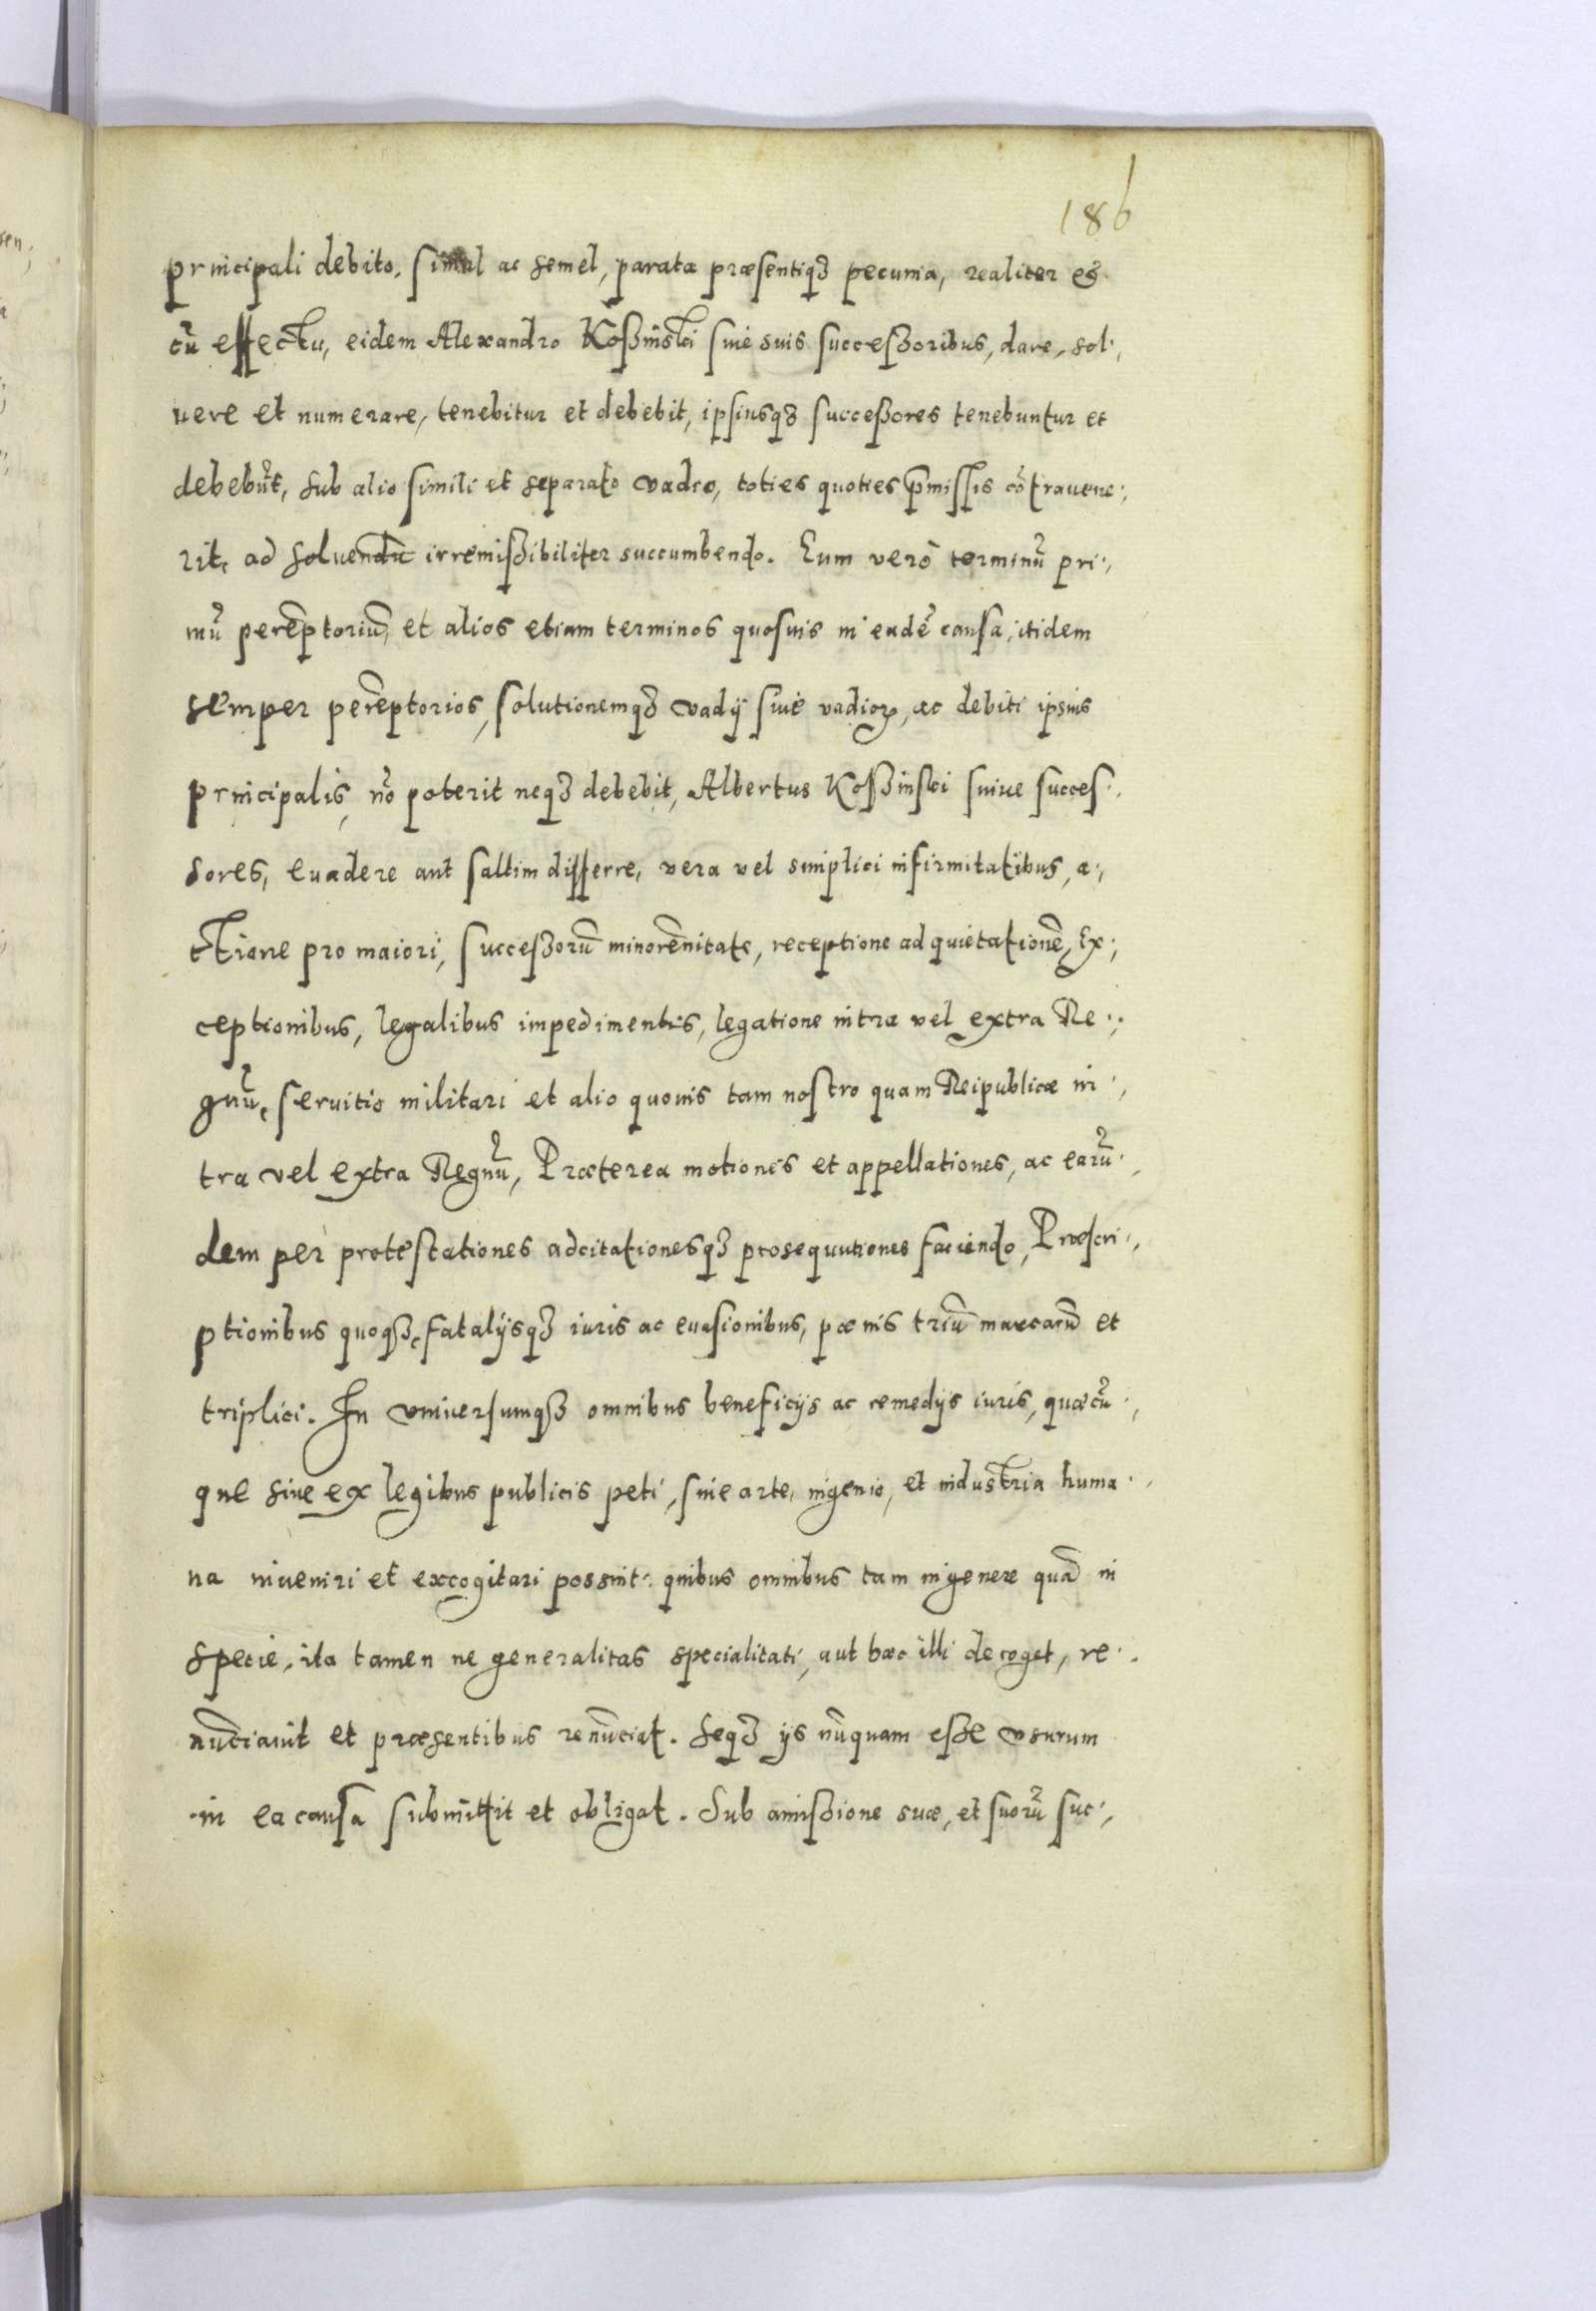 186
principali debito, simul ac semel, parata præsentiqȝ pecunia, realiter et
cū effectu, eidem Alexandro Koßinski siue suis successoribus, dare, sol-,
uere et numerare, tenebitur et debebit, ipsiusqȝ successores tenebuntur et
debebūt, sub alio simili et separato vadio, toties quoties p̄missis cōtrauene-,
rit, ad soluendū irremissibiliter succumbendo. Eum verò terminū pri-,
mū perēptoriū, et alios etiam terminos quosuis in eadē causa, itidem
semper perēptorios, solutionemqȝ vadij siue vadioꝝ, ac debiti ipsius
principalis, nō poterit neqȝ debebit, Albertus Koßinski suiue succes-,
sores, euadere aut saltim differre, vera vel simplici infirmitatibus, a-,
ctione pro maiori, successorū minorēnitate, receptione ad quietationē, Ex-,
ceptionibus, legalibus impedimentis, legatione intra vel extra Re-,
gnū, seruitio militari et alio quouis tam nostro quam Reipublicæ in-,
tra vel extra Regnū, Præterea motiones et appellationes, ac earū-,
dem per protestationes adcitationesqȝ prosequutiones faciendo, Præscri-,
ptionibus quoqȝ, fatalijsqȝ iuris ac euasionibus, pœnis triū marcarū et
triplici. In vniuersumqȝ omnibus beneficijs ac remedijs iuris, quæcū-,
que siue ex legibus publicis peti, siue arte, ingenio, et industria huma-,
na inueniri et excogitari possint: quibus omnibus tam in genere quā in
specie, ita tamen ne generalitas specialitati, aut hæc illi deroget, re-,
nūciauit et præsentibus renūciat. Seqȝ ijs nūquam esse vsurum
in ea causa submittit et obligat. Sub amissione suæ, et suorū suc-,